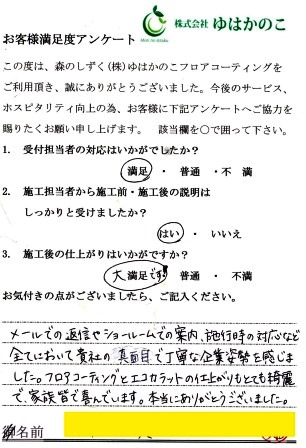 株式会社 ゆはかのこ
お客様満足度アンケート
この度は、森のしずく(株)ゆはかのこフロアコーティングを
ご利用頂き、誠にありがとうございました。今後のサービス、
ホスピタリティ向上の為、お客様に下記アンケートへご協力を
賜りたくお願い申し上げます。 該当欄を○で囲って下さい。
1. 受付担当者の対応はいかがでしたか?
満足 ・ 普通 ・不 満
2. 施工担当者から施工前・施工後の説明は
しっかりと受けましたか?
はい ・ いいえ
3. 施工後の仕上がりはいかがですか?
大満足です! 普通 ・ 不満
お気付きの点がございましたら、ご記入ください。
メールでの返信やショールームでの案内、施行時の対応など
全てにおいて貴社の真面目で丁寧な企業姿勢を感じま
した。フロアコーティングとエコカラットの仕上がりもとても綺麗
で、家族皆で喜んでいます。本当にありがとうございました。
名前